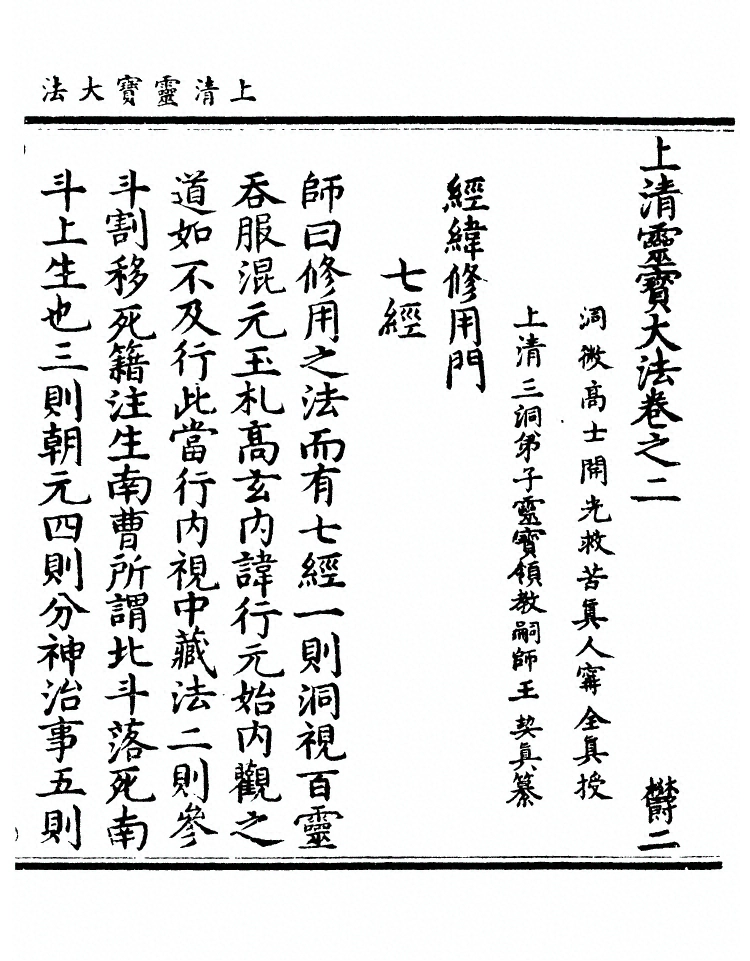 上清靈寶大法
上清靈寶大法卷之二 欝二
洞微高士開光救苦眞人甯全眞授
上清三洞弟子靈寶領教嗣師王契眞纂
經緯修用門
七經
師曰修用之法而有七經一則洞視百靈
吞服混元玉札高玄內諱行元始內觀之
道如不及行此當行內視中藏法二則參
斗割移死籍注生南曹所謂北斗落死南
斗上生也三則朝元四則分神治事五則